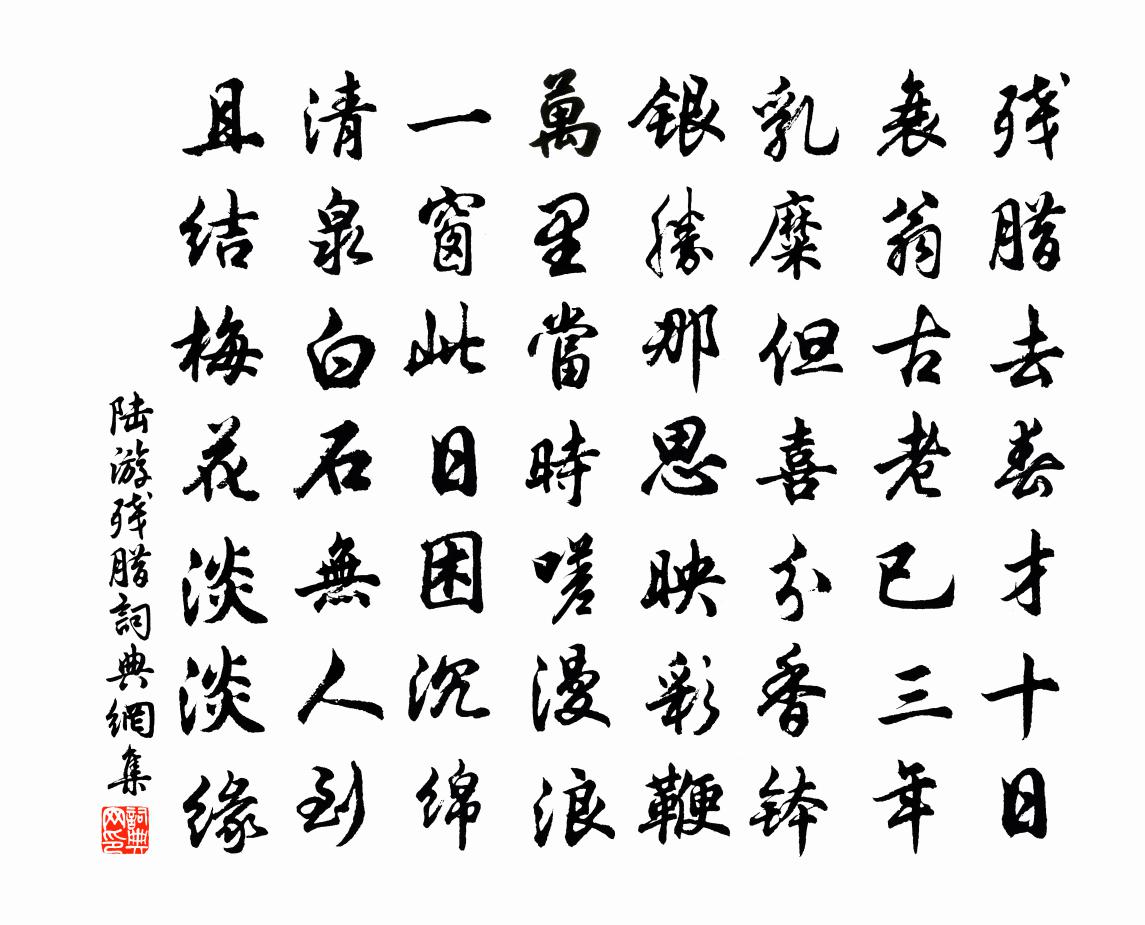 残腊去春才十日
衰翁古老已三年
乳糜但喜分香钵
银勝那思映彩鞭
萬里當時嗟漫浪
一窗此日困沉绵
清泉白石無人到
且结梅花淡淡缘
陆游残腊詞典網集
詞典
网印